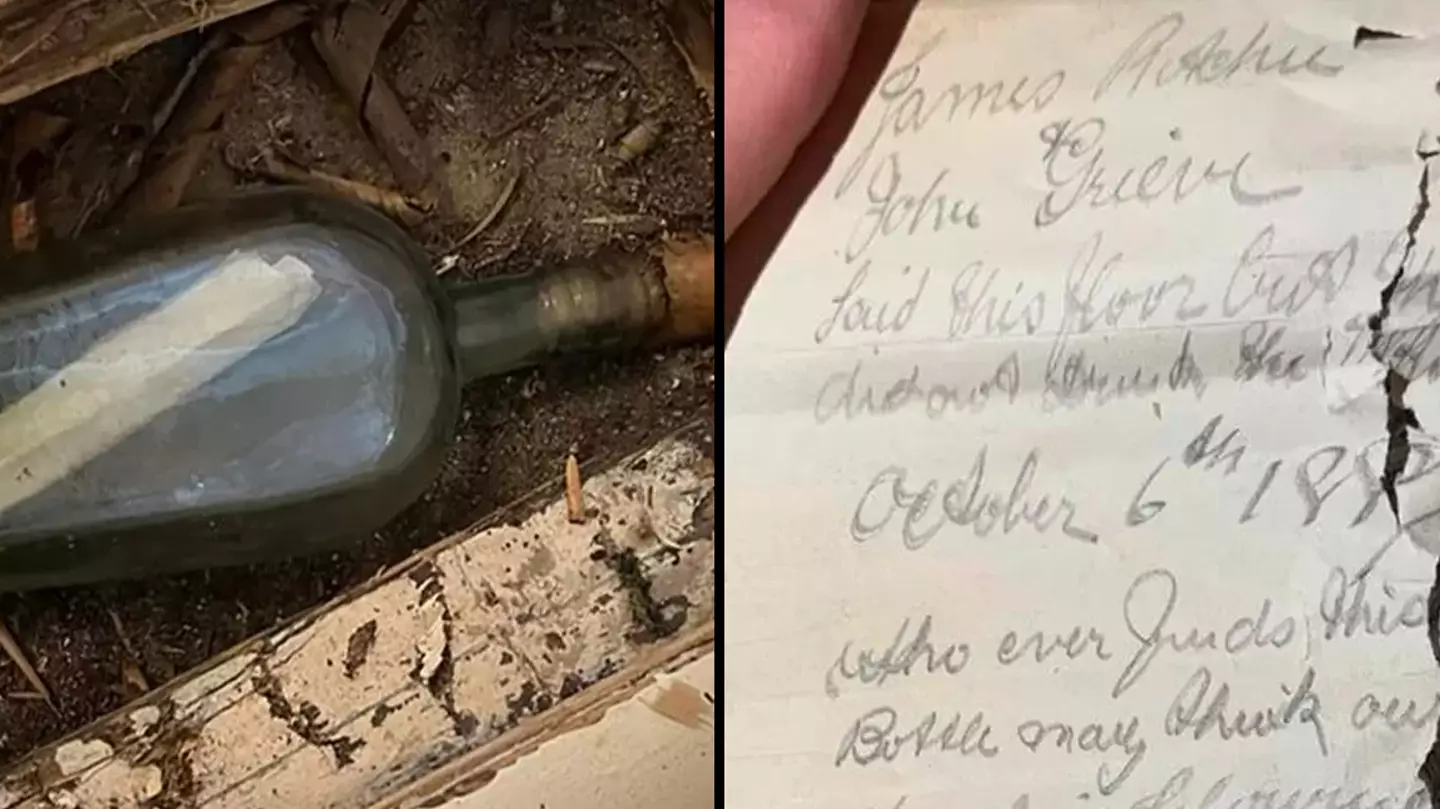 James Ritchie
& John Grieve
laid this floor but they
did not drink the
October 6th 1887
Who ever finds this
Bottle may think our